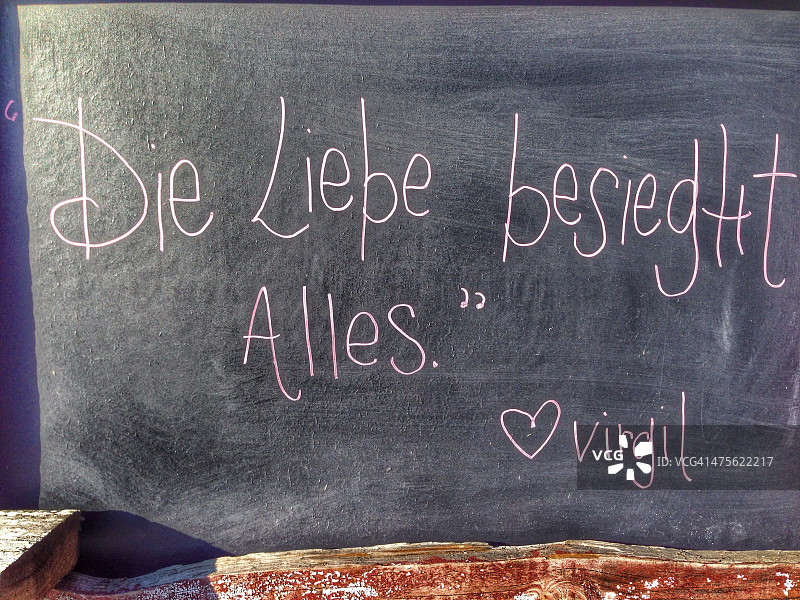 “Die Liebe besieght
Alles.”
♡ virgil
VCG ID: VCG41475622217